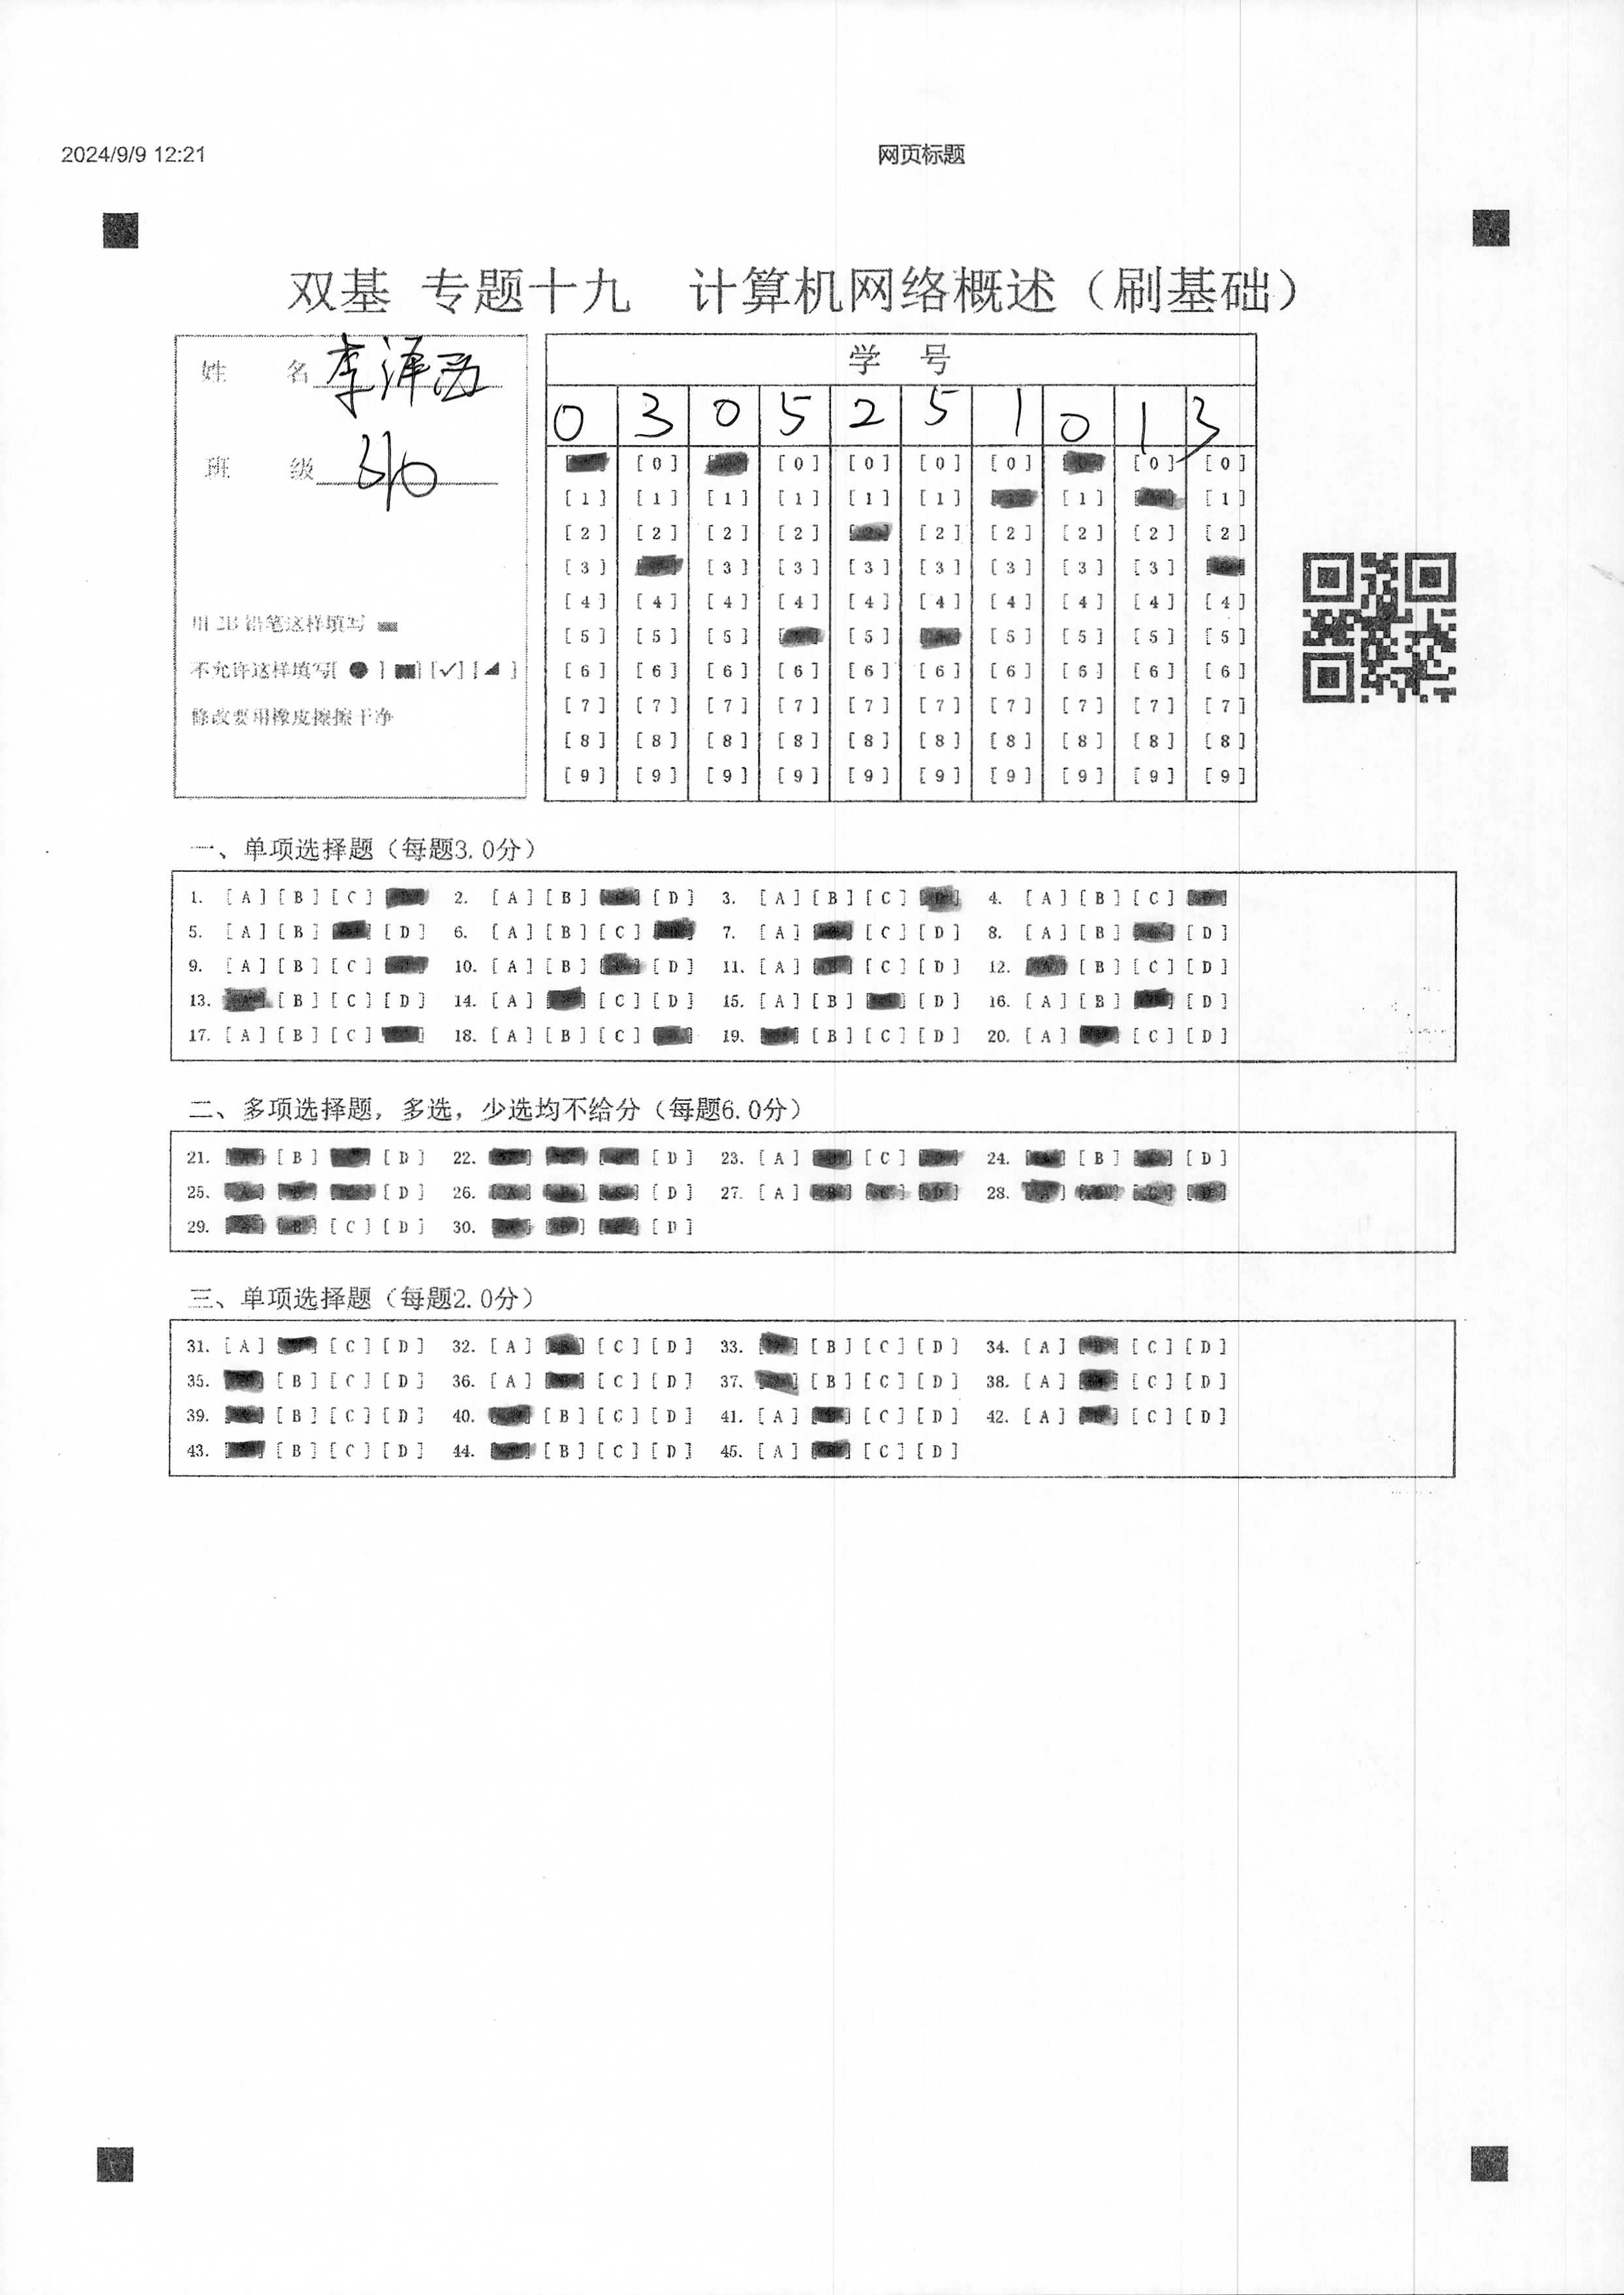 2024/9/9 12:21 网页标题
双基 专题十九 计算机网络概述（刷基础）
姓 名 李泽
班 级 310
用 2B 铅笔这样填写
不允许这样填写[ ● ] [■] [✓] [◢ ]
修改要用橡皮擦擦干净
学 号
0 3 0 5 2 5 1 0 1 3
[0] [0] [0] [0] [0] [0] [0]
[1] [1] [1] [1] [1] [1] [1] [1]
[2] [2] [2] [2] [2] [2] [2] [2] [2]
[3] [3] [3] [3] [3] [3] [3] [3]
[4] [4] [4] [4] [4] [4] [4] [4] [4] [4]
[5] [5] [5] [5] [5] [5] [5] [5]
[6] [6] [6] [6] [6] [6] [6] [6] [6] [6]
[7] [7] [7] [7] [7] [7] [7] [7] [7] [7]
[8] [8] [8] [8] [8] [8] [8] [8] [8] [8]
[9] [9] [9] [9] [9] [9] [9] [9] [9] [9]
一、单项选择题（每题3.0分）
1. [A] [B] [C] 2. [A] [B] [D] 3. [A] [B] [C] 4. [A] [B] [C]
5. [A] [B] [D] 6. [A] [B] [C] 7. [A] [C] [D] 8. [A] [B] [D]
9. [A] [B] [C] 10. [A] [B] [D] 11. [A] [C] [D] 12. [B] [C] [D]
13. [B] [C] [D] 14. [A] [C] [D] 15. [A] [B] [D] 16. [A] [B] [D]
17. [A] [B] [C] 18. [A] [B] [C] 19. [B] [C] [D] 20. [A] [C] [D]
二、多项选择题，多选，少选均不给分（每题6.0分）
21. [B] [D] 22. [D] 23. [A] [C] 24. [B] [D]
25. [D] 26. [D] 27. [A] 28.
29. [C] [D] 30. [D]
三、单项选择题（每题2.0分）
31. [A] [C] [D] 32. [A] [C] [D] 33. [B] [C] [D] 34. [A] [C] [D]
35. [B] [C] [D] 36. [A] [C] [D] 37. [B] [C] [D] 38. [A] [C] [D]
39. [B] [C] [D] 40. [B] [C] [D] 41. [A] [C] [D] 42. [A] [C] [D]
43. [B] [C] [D] 44. [B] [C] [D] 45. [A] [C] [D]